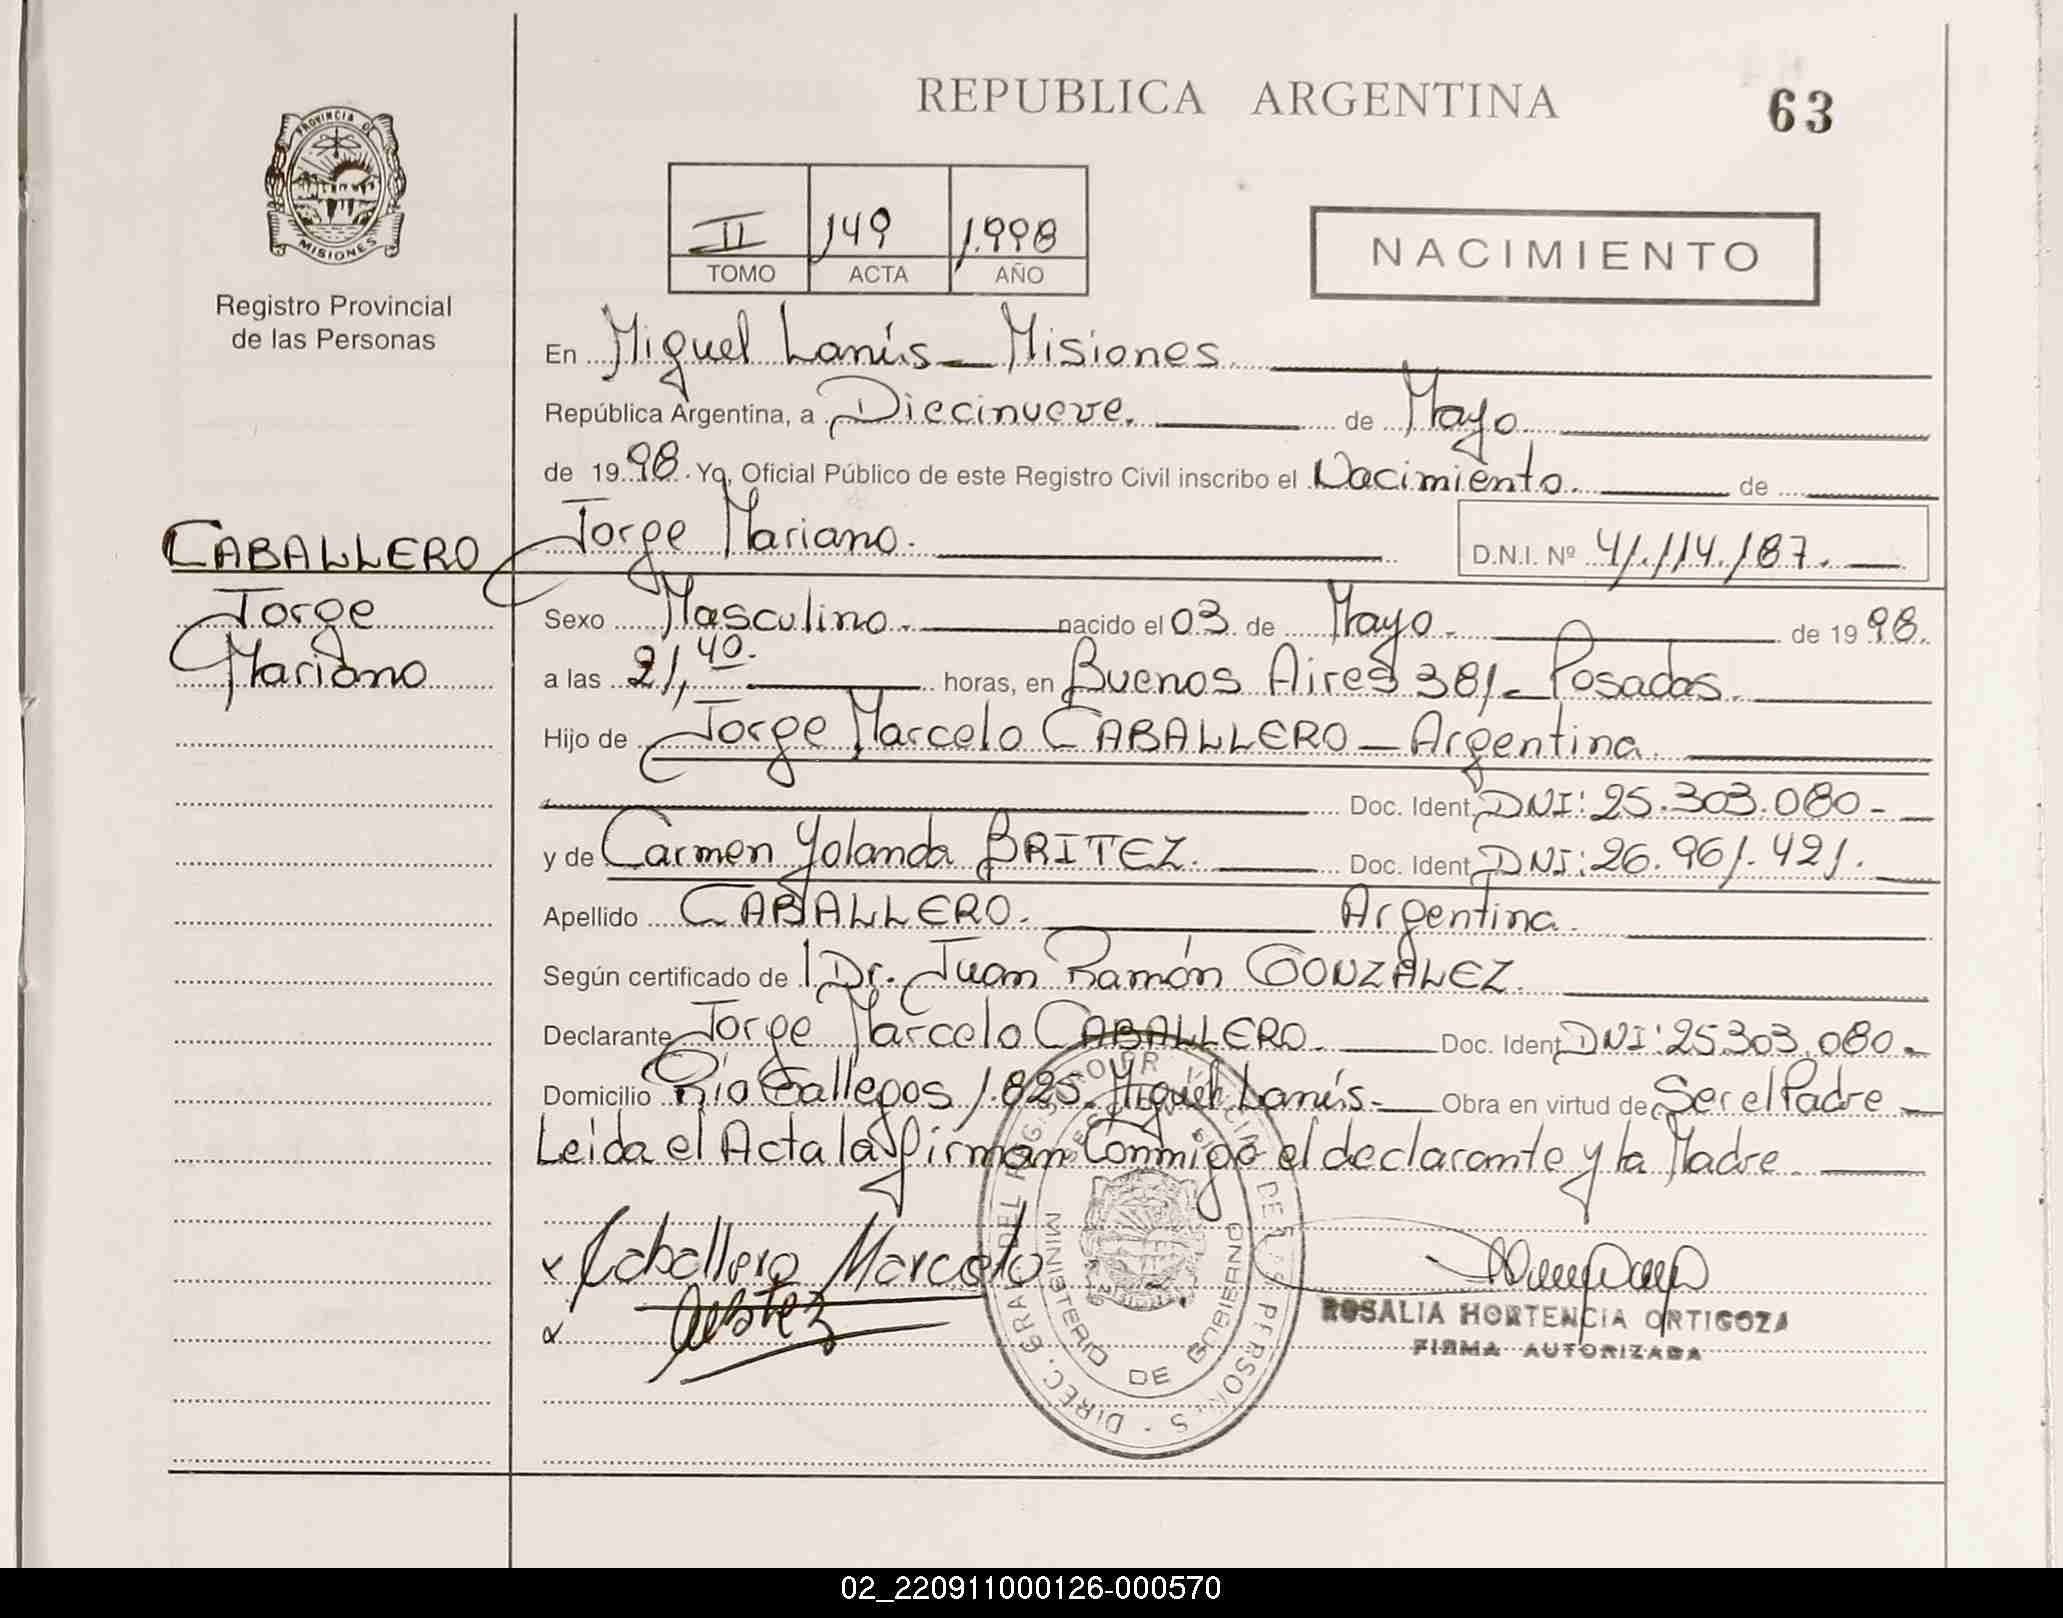 REPUBLICA ARGENTINA
63
PROVINCIA DE
MISIONES
Registro Provincial
de las Personas
II 149 1.998
TOMO ACTA AÑO
NACIMIENTO
En Miguel Lanús - Misiones
República Argentina, a Diecinueve. de Mayo
de 1998. Yo, Oficial Público de este Registro Civil inscribo el Nacimiento. de
CABALLERO
Jorge
Mariano
Jorge Mariano. D.N.I. Nº 41.114.187.
Sexo Masculino. nacido el 03 de Mayo. de 1998.
a las 21,40. horas, en Buenos Aires 381 - Posadas.
Hijo de Jorge Marcelo CABALLERO - Argentina.
Doc. Ident. DNI: 25.303.080 -
y de Carmen Yolanda BRITEZ. Doc. Ident. DNI: 26.961.421.
Apellido CABALLERO. Argentina.
Según certificado de Dr. Juan Ramón GONZALEZ.
Declarante Jorge Marcelo CABALLERO. Doc. Ident. DNI: 25303.080 -
Domicilio Río Gallegos 1.825. Miguel Lanús. Obra en virtud de Ser el Padre
Leida el Acta la firman Conmigo el declarante y la Madre.
x Caballero Marcelo
x Britez
MINISTERIO DE GOBIERNO
ROSALIA HORTENCIA ORTIGOZA
FIRMA AUTORIZADA
02_220911000126-000570